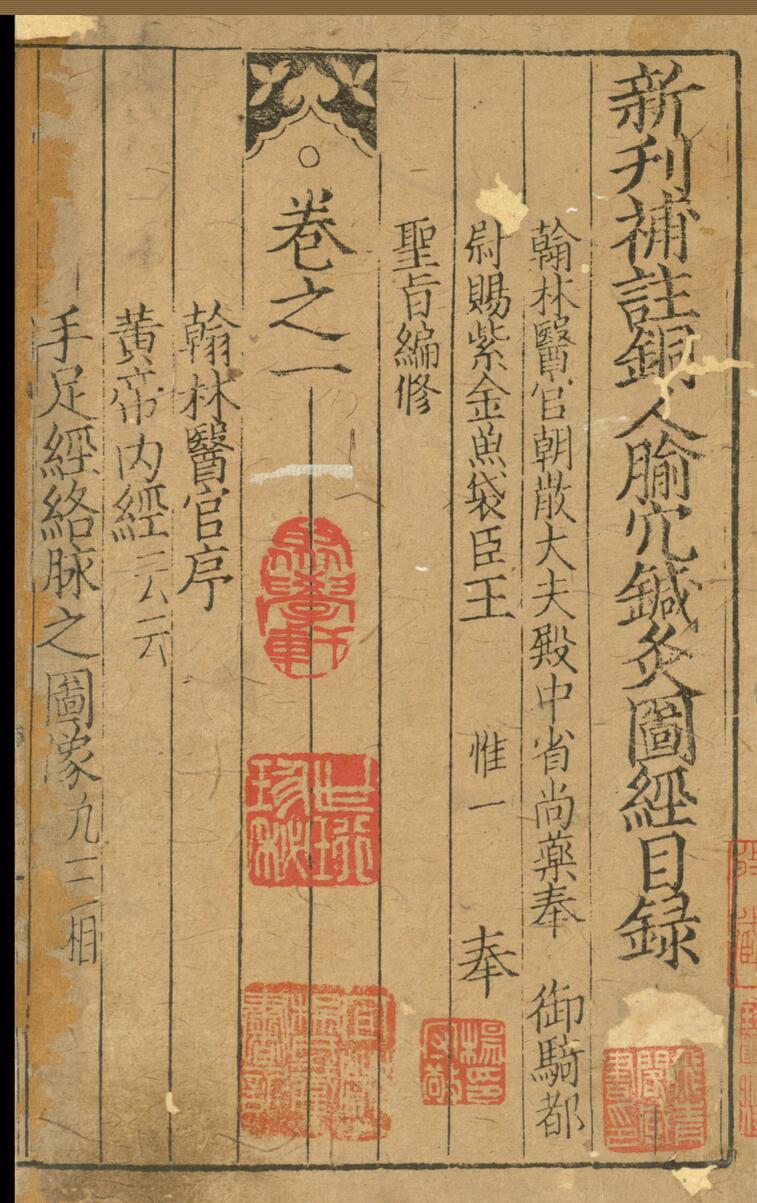 新刋補註銅人腧穴鍼灸圖經目録
翰林醫官朝散大夫殿中省尚藥奉　御騎都
尉賜紫金魚袋臣王　惟一　奉
聖旨編修
卷之一
翰林醫官序
黄帝内經云云
手足經絡脉之圖像九三相